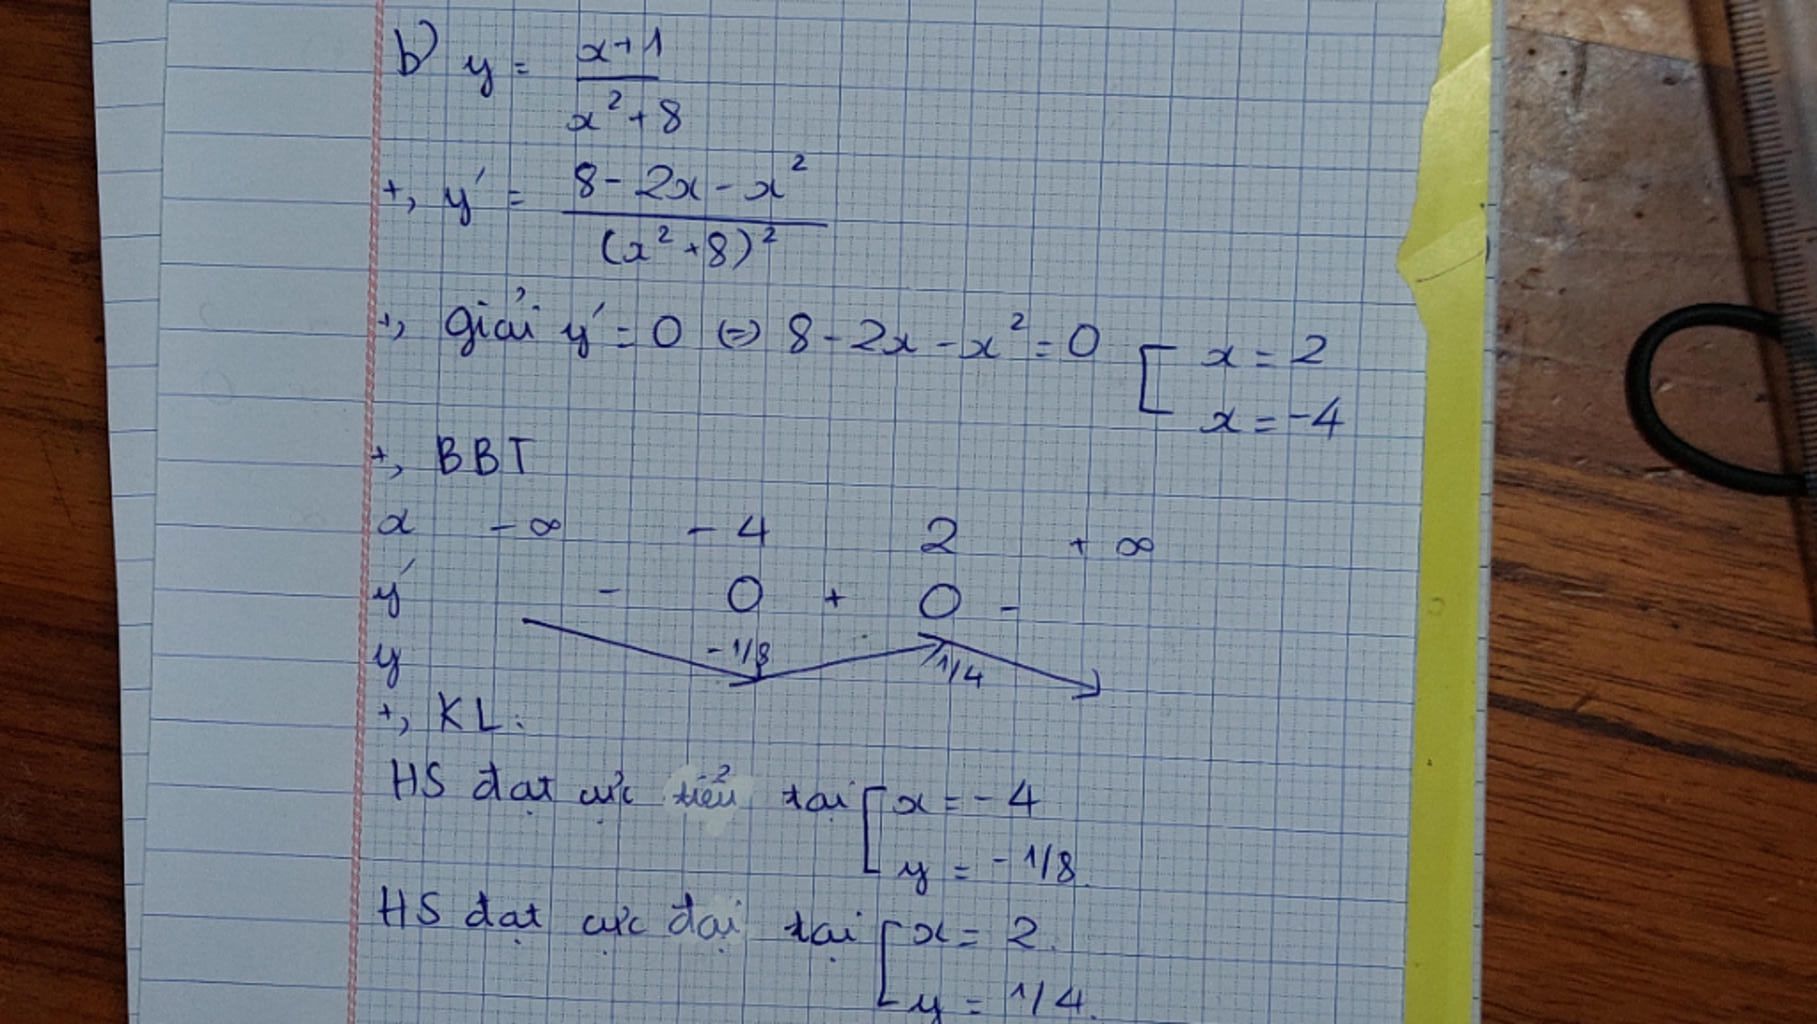 b) y = x+1 / x²+8
+, y' = 8-2x-x² / (x²+8)²
+, giải y' = 0 (=) 8-2x-x² = 0 [ x = 2
x = -4
+, BBT
x -∞ -4 2 +∞
y' - 0 + 0 -
y -1/8 1/4
+, KL:
HS đạt cực tiểu tại [ x = -4
y = -1/8.
HS đạt cực đại tại [ x = 2.
y = 1/4.